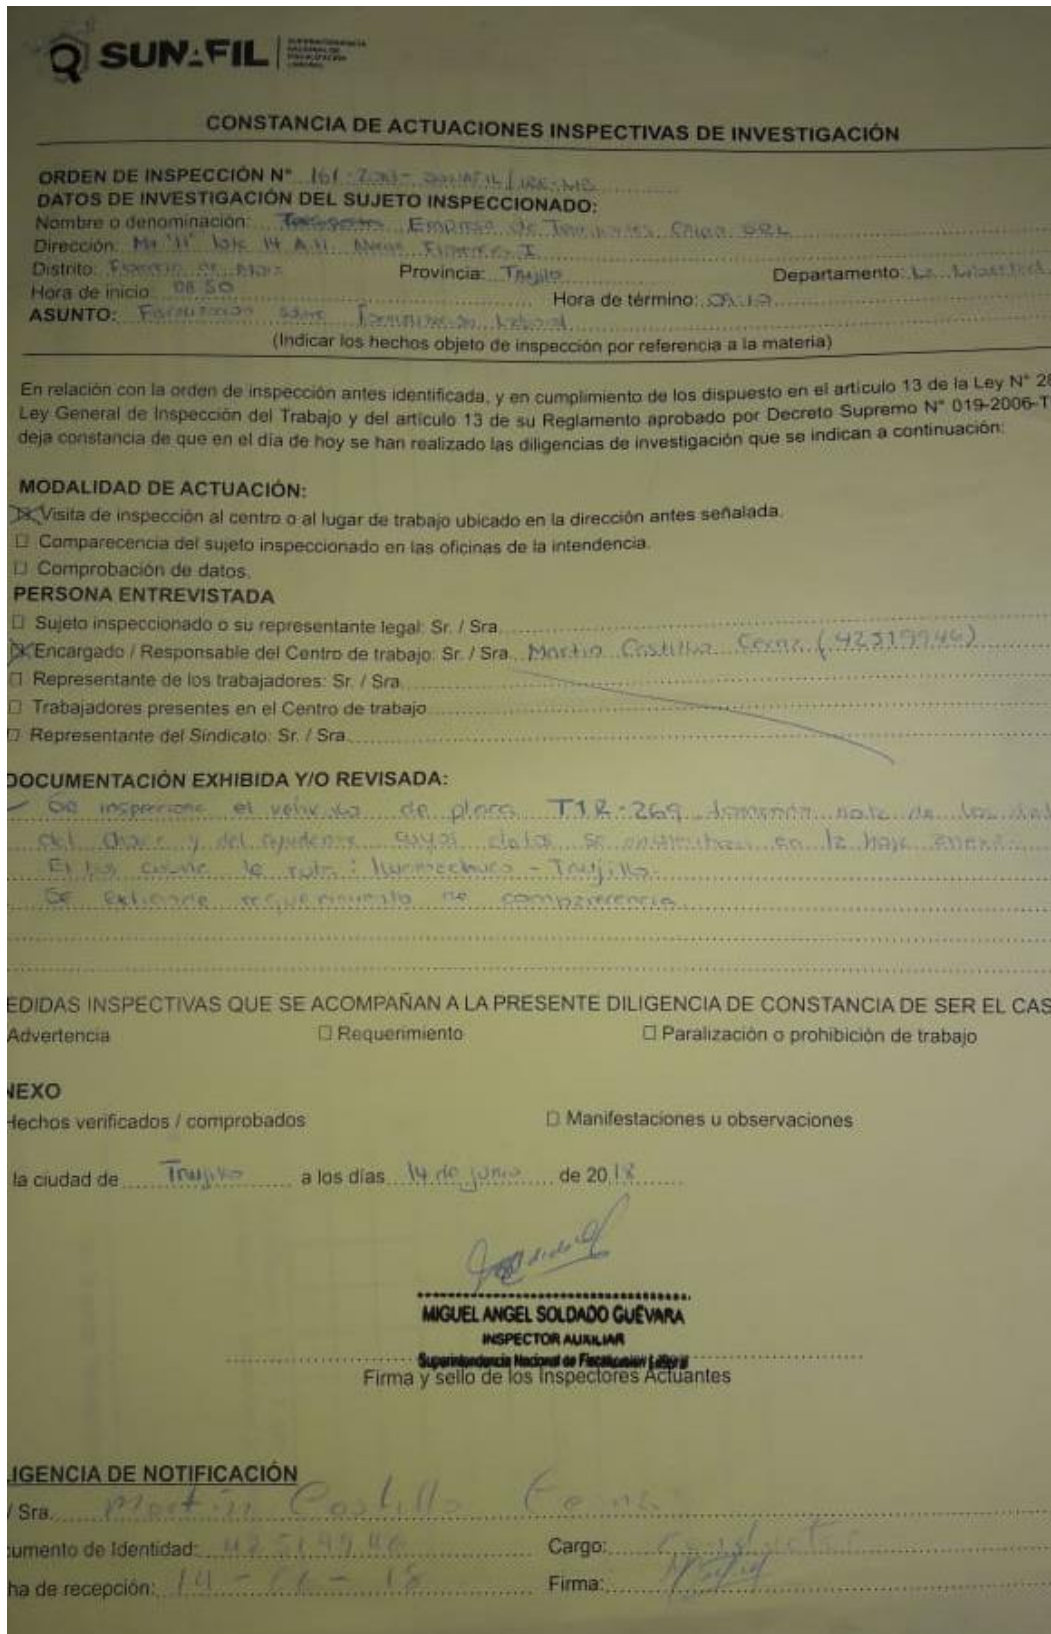 SUNAFIL SUPERINTENDENCIA NACIONAL DE FISCALIZACIÓN LABORAL
CONSTANCIA DE ACTUACIONES INSPECTIVAS DE INVESTIGACIÓN
ORDEN DE INSPECCIÓN N° 161
DATOS DE INVESTIGACIÓN DEL SUJETO INSPECCIONADO:
Nombre o denominación: Empresa de
Dirección: Mz "11" lote 14 A.H.
Distrito: Provincia: Trujillo Departamento: La Libertad
Hora de inicio: 08:50 Hora de término:
ASUNTO: sobre Laboral
(Indicar los hechos objeto de inspección por referencia a la materia)
En relación con la orden de inspección antes identificada, y en cumplimiento de los dispuesto en el artículo 13 de la Ley N° 28
Ley General de Inspección del Trabajo y del artículo 13 de su Reglamento aprobado por Decreto Supremo N° 019-2006-T
deja constancia de que en el día de hoy se han realizado las diligencias de investigación que se indican a continuación:
MODALIDAD DE ACTUACIÓN:
Visita de inspección al centro o al lugar de trabajo ubicado en la dirección antes señalada.
Comparecencia del sujeto inspeccionado en las oficinas de la intendencia.
Comprobación de datos.
PERSONA ENTREVISTADA
Sujeto inspeccionado o su representante legal: Sr. / Sra.
Encargado / Responsable del Centro de trabajo: Sr. / Sra. Martin Castillo Cerna (42519946)
Representante de los trabajadores: Sr. / Sra.
Trabajadores presentes en el Centro de trabajo
Representante del Sindicato: Sr. / Sra.
DOCUMENTACIÓN EXHIBIDA Y/O REVISADA:
Se inspecciona el vehículo de placa T1R-269 nota de los
del y del cuyos datos se en la hoja
la ruta: Huamachuco - Trujillo.
Se requerimiento de comparecencia.
EDIDAS INSPECTIVAS QUE SE ACOMPAÑAN A LA PRESENTE DILIGENCIA DE CONSTANCIA DE SER EL CAS
Advertencia Requerimiento Paralización o prohibición de trabajo
NEXO
Hechos verificados / comprobados Manifestaciones u observaciones
la ciudad de Trujillo a los días 14 de junio de 2018
MIGUEL ANGEL SOLDADO GUEVARA
INSPECTOR AUXILIAR
Superintendencia Nacional de Fiscalización Laboral
Firma y sello de los Inspectores Actuantes
LIGENCIA DE NOTIFICACIÓN
/ Sra. Martin Castillo Cerna
cumento de Identidad: 42519946 Cargo: Conductor
ha de recepción: 14 - 06 - 18 Firma: